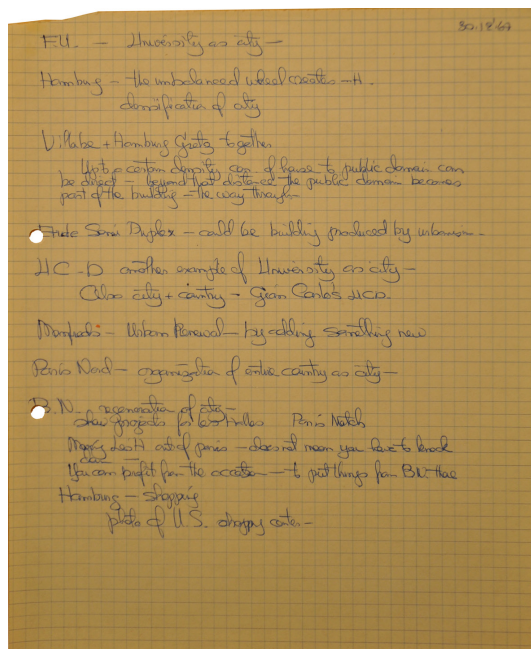 30.12.67
F.U. – University as city –
Hamburg – the unbalanced wheel creates –
densification of city
Villabe + Hamburg Gratz together
Up to a certain density con. of house to public domain can
be direct – beyond that distance the public domain becomes
part of the building – the way through
Semi Duplex – could be building produced by urbanism –
UC-D another example of University as city –
Also city + country – Gian Carlo's UCD.
Urban Renewal – by adding something new
Paris Nord – organization of entire country as city –
B.N. regeneration of city –
show projects for Les Halles Paris Match
out of paris – does not mean you have to knock
You can profit from the occasion – to put things from BN there
Hamburg – shopping
photo of U.S. shopping center –